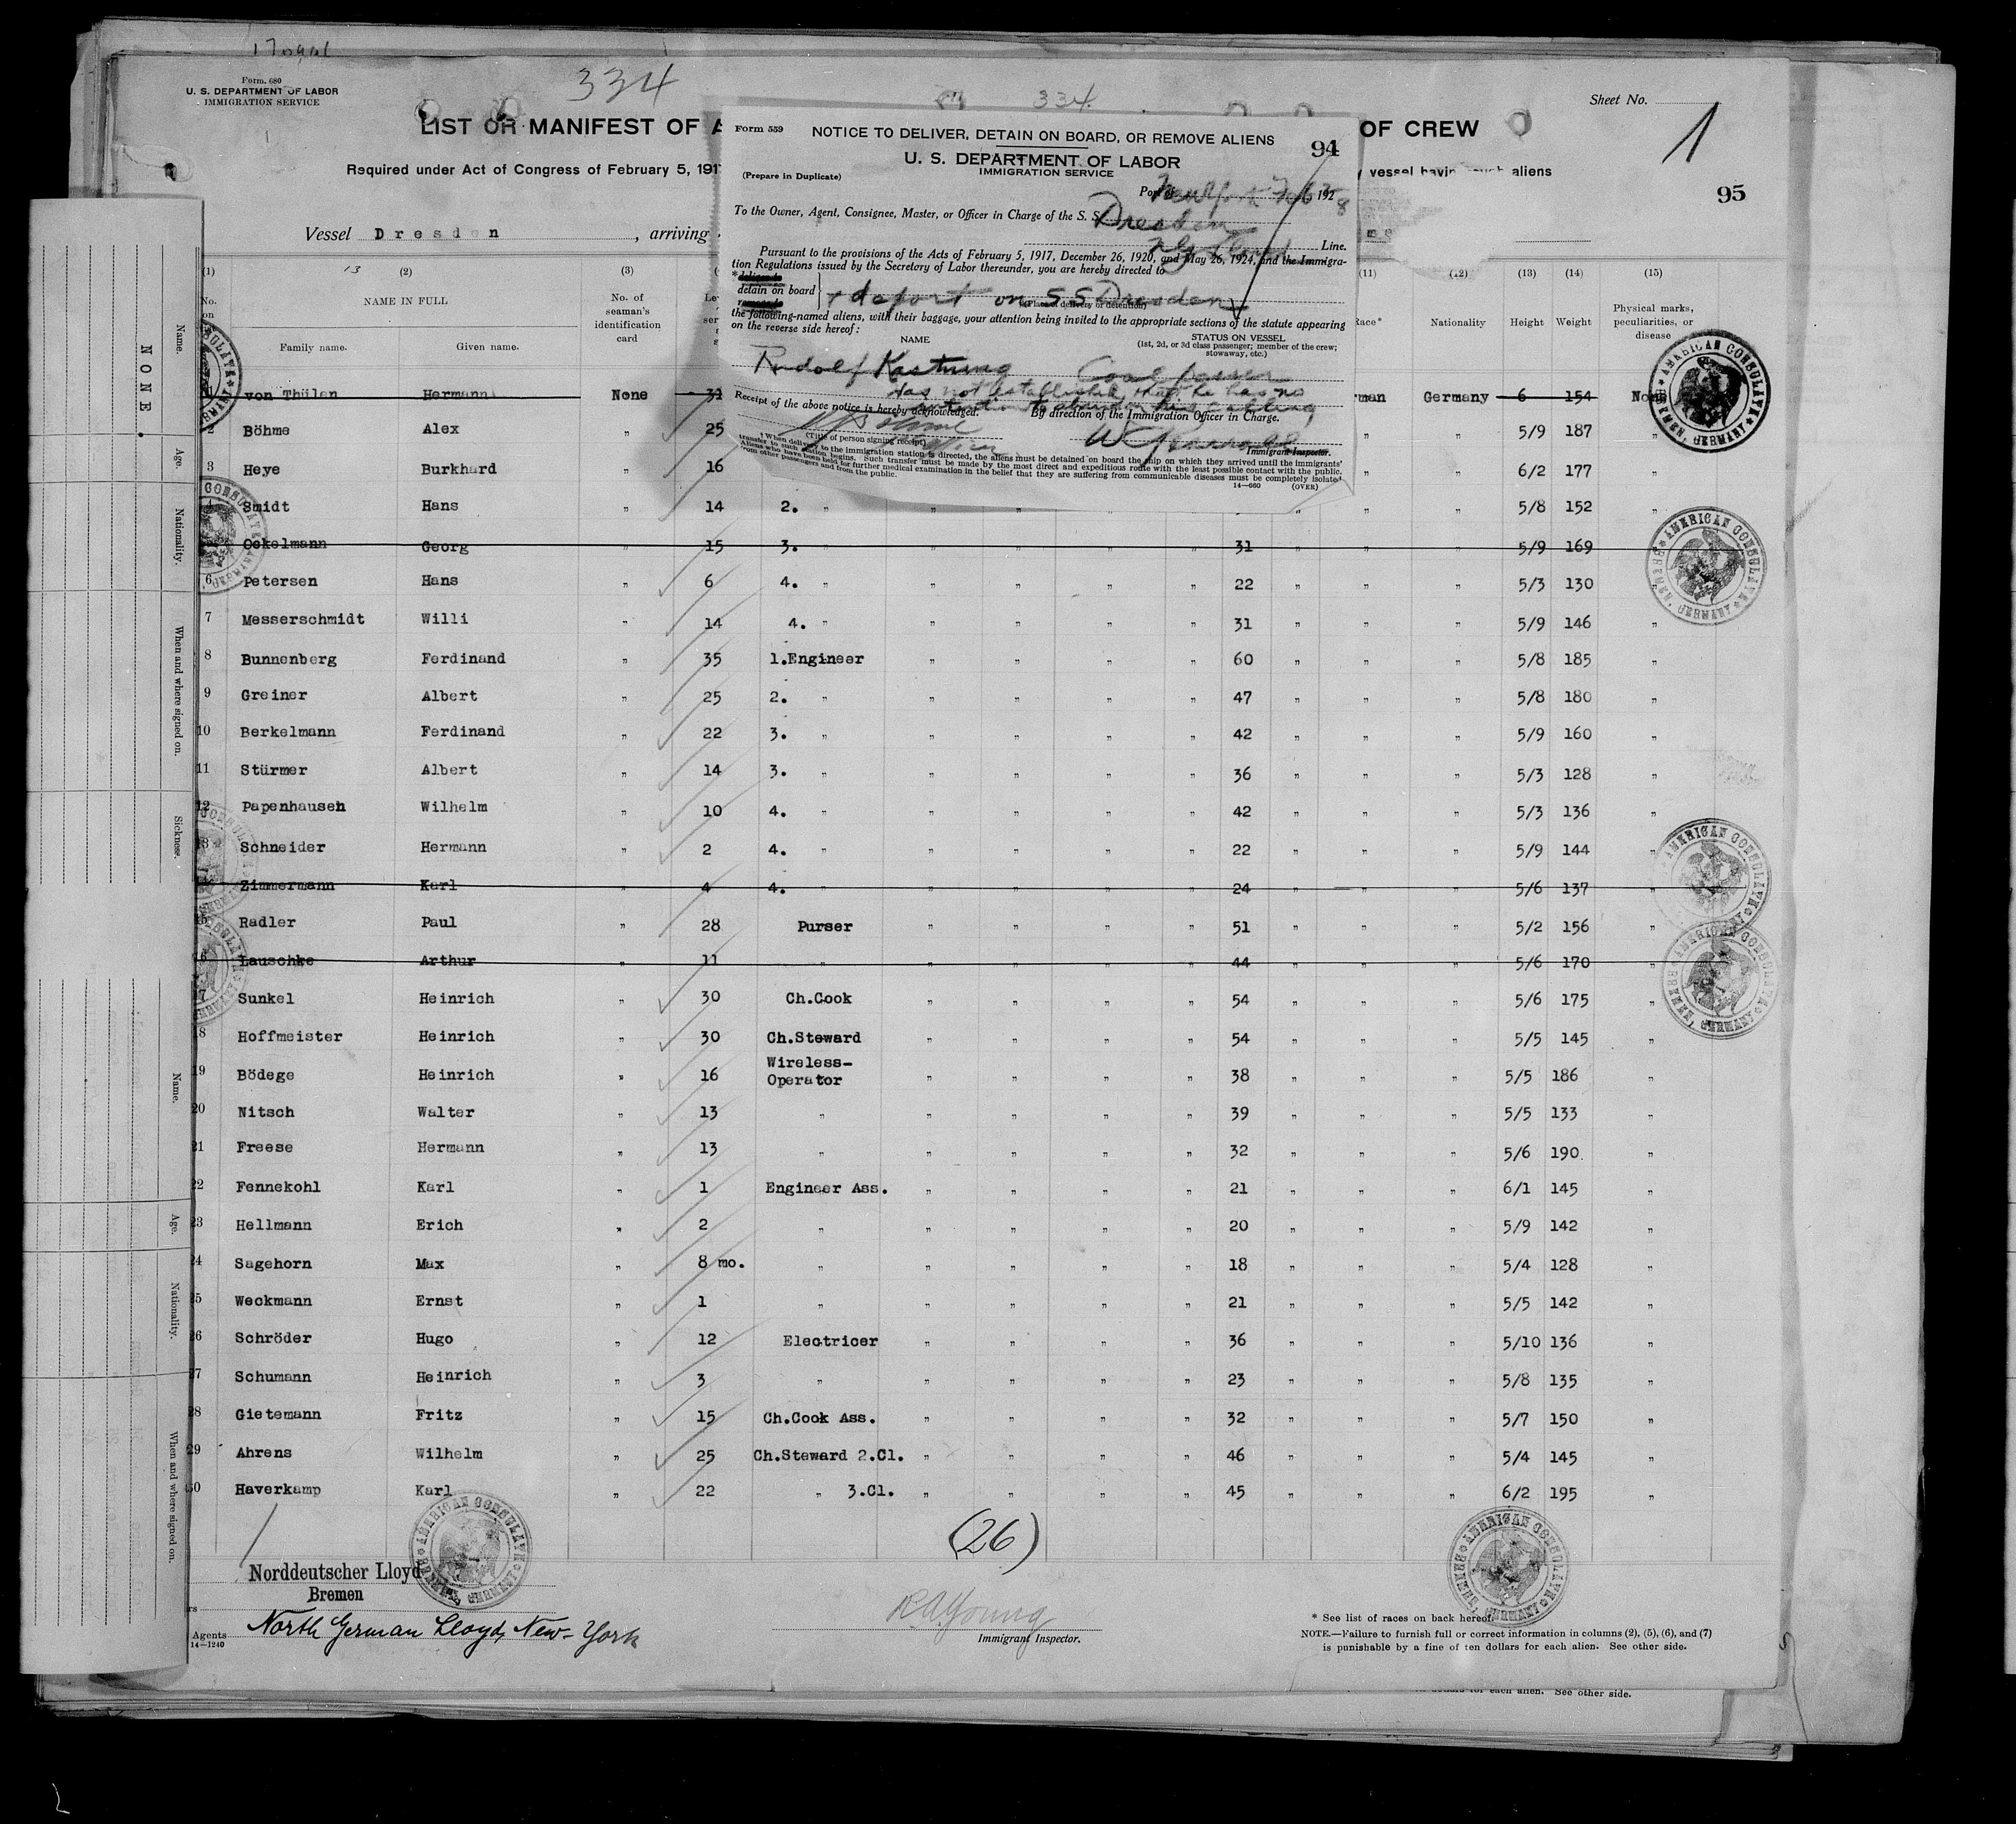 334
Form. 680
U. S. DEPARTMENT OF LABOR
IMMIGRATION SERVICE
LIST OR MANIFEST OF A
OF CREW
Sheet No.
1
Required under Act of Congress of February 5, 191
vessel having such aliens
95
Vessel Dresden, arriving
334
Form 559
NOTICE TO DELIVER, DETAIN ON BOARD, OR REMOVE ALIENS
94
U. S. DEPARTMENT OF LABOR
IMMIGRATION SERVICE
(Prepare in Duplicate)
Port of New York 192 8
To the Owner, Agent, Consignee, Master, or Officer in Charge of the S. S. Dresden
Line.
Pursuant to the provisions of the Acts of February 5, 1917, December 26, 1920, and May 26, 1924, and the Immigra-
tion Regulations issued by the Secretary of Labor thereunder, you are hereby directed to
*deliver to
detain on board + deport on SS Dresden
remove to
(Place of delivery or detention)
the following-named aliens, with their baggage, your attention being invited to the appropriate sections of the statute appearing
on the reverse side hereof:
NAME
STATUS ON VESSEL
(1st, 2d, or 3d class passenger; member of the crew;
stowaway, etc.)
Rudolf Kastning Coal passer
Has not established that he has no
Receipt of the above notice is hereby acknowledged. By direction of the Immigration Officer in Charge.
(Title of person signing receipt)
Immigrant Inspector.
* When delivery to the immigration station is directed, the aliens must be detained on board the ship on which they arrived until the immigrants'
transfer to such station begins. Such transfer must be made by the most direct and expeditious route with the least possible contact with the public.
Aliens who have been held for further medical examination in the belief that they are suffering from communicable diseases must be completely isolated
from other passengers and from the public.
14—660 (OVER)
(1) 13 (2) (3) (11) (12) (13) (14) (15)
No. on
NAME IN FULL
Family name. Given name.
No. of seaman's identification card
Race* Nationality Height Weight
Physical marks, peculiarities, or disease
1 von Thülen Hermann None 31 rman Germany 6 154 None
2 Böhme Alex " 25 " " 5/9 187 "
3 Heye Burkhard " 16 " " 6/2 177 "
4 Smidt Hans " 14 2. " " " " " " " 5/8 152 "
5 Ockelmann Georg " 15 3. " " " " " 31 " " " 5/9 169 "
6 Petersen Hans " 6 4. " " " " " 22 " " " 5/3 130 "
7 Messerschmidt Willi " 14 4. " " " " " 31 " " " 5/9 146 "
8 Bunnenberg Ferdinand " 35 1.Engineer " " " " 60 " " " 5/8 185 "
9 Greiner Albert " 25 2. " " " " " 47 " " " 5/8 180 "
10 Berkelmann Ferdinand " 22 3. " " " " " 42 " " " 5/9 160 "
11 Stürmer Albert " 14 3. " " " " " 36 " " " 5/3 128 "
12 Papenhausen Wilhelm " 10 4. " " " " " 42 " " " 5/3 136 "
13 Schneider Hermann " 2 4. " " " " " 22 " " " 5/9 144 "
14 Zimmermann Karl " 4 4. " " " " " 24 " " " 5/6 137 "
15 Radler Paul " 28 Purser " " " " 51 " " " 5/2 156 "
16 Lauschke Arthur " 11 " " " " " 44 " " " 5/6 170 "
17 Sunkel Heinrich " 30 Ch.Cook " " " " 54 " " " 5/6 175 "
18 Hoffmeister Heinrich " 30 Ch.Steward " " " " 54 " " " 5/5 145 "
19 Bödege Heinrich " 16 Wireless-Operator " " " " 38 " " " 5/5 186 "
20 Nitsch Walter " 13 " " " " " 39 " " " 5/5 133 "
21 Freese Hermann " 13 " " " " " 32 " " " 5/6 190 "
22 Fennekohl Karl " 1 Engineer Ass. " " " " 21 " " " 6/1 145 "
23 Hellmann Erich " 2 " " " " " 20 " " " 5/9 142 "
24 Sagehorn Max " 8 mo. " " " " " 18 " " " 5/4 128 "
25 Weckmann Ernst " 1 " " " " " 21 " " " 5/5 142 "
26 Schröder Hugo " 12 Electricer " " " " 36 " " " 5/10 136 "
27 Schumann Heinrich " 3 " " " " " 23 " " " 5/8 135 "
28 Gietemann Fritz " 15 Ch.Cook Ass. " " " " 32 " " " 5/7 150 "
29 Ahrens Wilhelm " 25 Ch.Steward 2.Cl. " " " " 46 " " " 5/4 145 "
30 Haverkamp Karl " 22 " 3.Cl. " " " " 45 " " " 6/2 195 "
(26)
Norddeutscher Lloyd
Bremen
Agents North German Lloyd, New-York
14—1240
R A Young
Immigrant Inspector.
* See list of races on back hereof.
NOTE.—Failure to furnish full or correct information in columns (2), (5), (6), and (7)
is punishable by a fine of ten dollars for each alien. See other side.
for each alien. See other side.
AMERICAN CONSULATE
BREMEN, GERMANY
NONE.
Name.
Age.
Nationality.
When and where signed on.
Sickness.
Name.
Age.
Nationality.
When and where signed on.